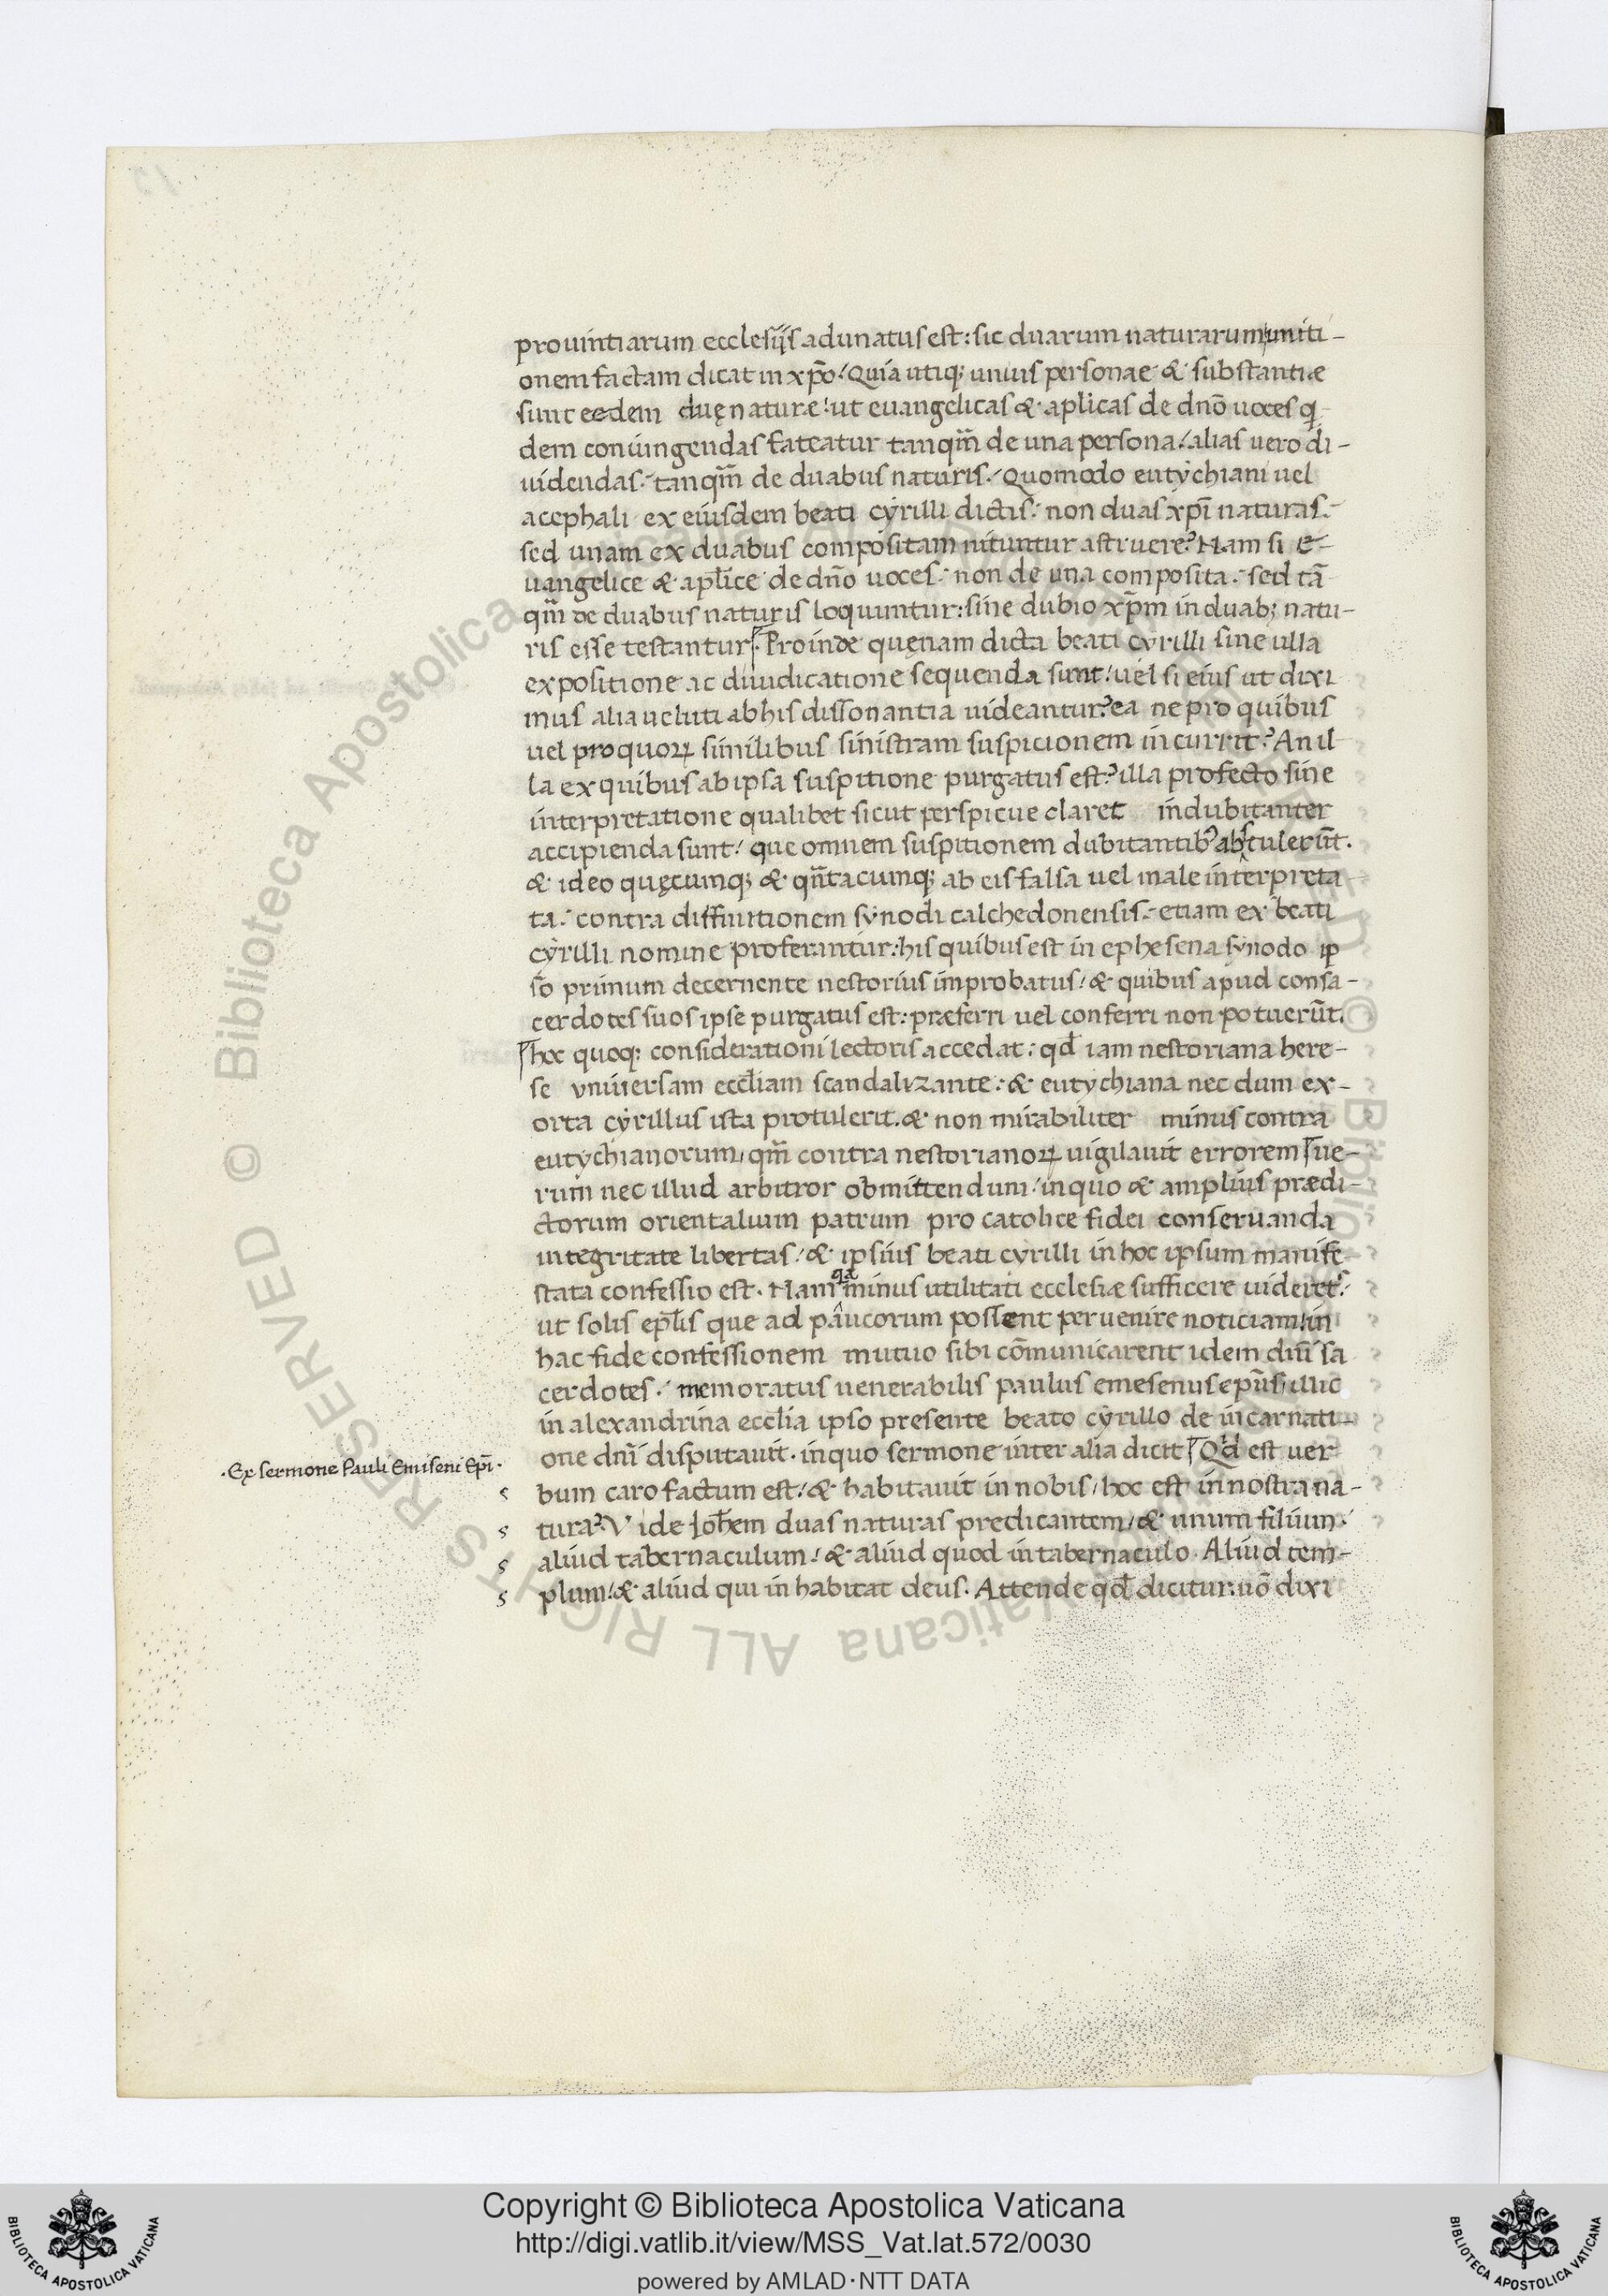 prouintiarum ecclesijs adunatus est: sic duarum naturarum uniti-
onem factam dicat in xp̄o. Quia utiq; unius personae & substantiae
sunt eedem duę naturae. ut euangelicas & aplicas de dn̄o uoces q
dem coniungendas fateatur tanqm̄ de una persona. alias uero di-
uidendas. tanqm̄ de duabus naturis. Quomodo eutychiani uel
acephali ex eiusdem beati cyrilli dictis. non duas xp̄i naturas.
sed unam ex duabus compositam nituntur astruere? Nam si e-
uangelice & apl̄ice de dn̄o uoces. non de una composita. sed tā
qm̄ de duabus naturis loquuntur: sine dubio xp̄m in duab; natu-
ris esse testantur. Proinde quęnam dicta beati cyrilli sine ulla
expositione ac diiudicatione sequenda sunt. uel si eius ut dixi
mus alia ueluti ab his dissonantia uideantur? ea ne pro quibus
uel pro quoꝝ similibus sinistram suspicionem incurrit? An il
la ex quibus ab ipsa suspitione purgatus est? illa profecto sine
interpretatione qualibet sicut perspicue claret indubitanter
accipienda sunt. que omnem suspitionem dubitantib; abstulerūt.
& ideo quęcumq; & qn̄tacumq; ab eis falsa uel male interpreta
ta. contra diffinitionem synodi calchedonensis. etiam ex beati
cyrilli nomine proferantur: his quibus est in ephesena synodo ip
so primum decernente nestorius improbatus. & quibus apud consa-
cerdotes suos ipse purgatus est: præferri uel conferri non potuerūt.
hoc quoq; considerationi lectoris accedat: qd̄ iam nestoriana here-
se uniuersam eccl̄iam scandalizante. & eutychiana nec dum ex-
orta cyrillus ista protulerit. & non mirabiliter minus contra
eutychianorum, qm̄ contra nestorianoꝝ uigilauit errorem ue-
rum nec illud arbitror obmittendum. in quo & amplius prædi-
ctorum orientalium patrum pro catolice fidei conseruanda
integritate libertas. & ipsius beati cyrilli in hoc ipsum manife
stata confessio est. Nam qa minus utilitati ecclesiæ sufficere uideret.
ut solis ep̄is que ad paucorum possent peruenire noticiam in
hac fide confessionem mutuo sibi cōmunicarent idem dn̄i sa
cerdotes. memoratus uenerabilis paulus emesenus ep̄us, illic
in alexandrina eccl̄ia ipso presente beato cyrillo de incarnati-
one dn̄i disputauit. in quo sermone inter alia dicit Qd̄ est uer
·Ex sermone Pauli Emiseni Epi̅·
bum caro factum est. & habitauit in nobis, hoc est in nostra na-
tura? Vide Ioh̄em duas naturas predicantem, & unum filium.
aliud tabernaculum. & aliud quod in tabernaculo. Aliud tem-
plum. & aliud qui in habitat deus. Attende qd̄ dicitur. nō dixi
Copyright © Biblioteca Apostolica Vaticana
http://digi.vatlib.it/view/MSS_Vat.lat.572/0030
powered by AMLAD·NTT DATA
BIBLIOTECA APOSTOLICA VATICANA
BIBLIOTECA APOSTOLICA VATICANA